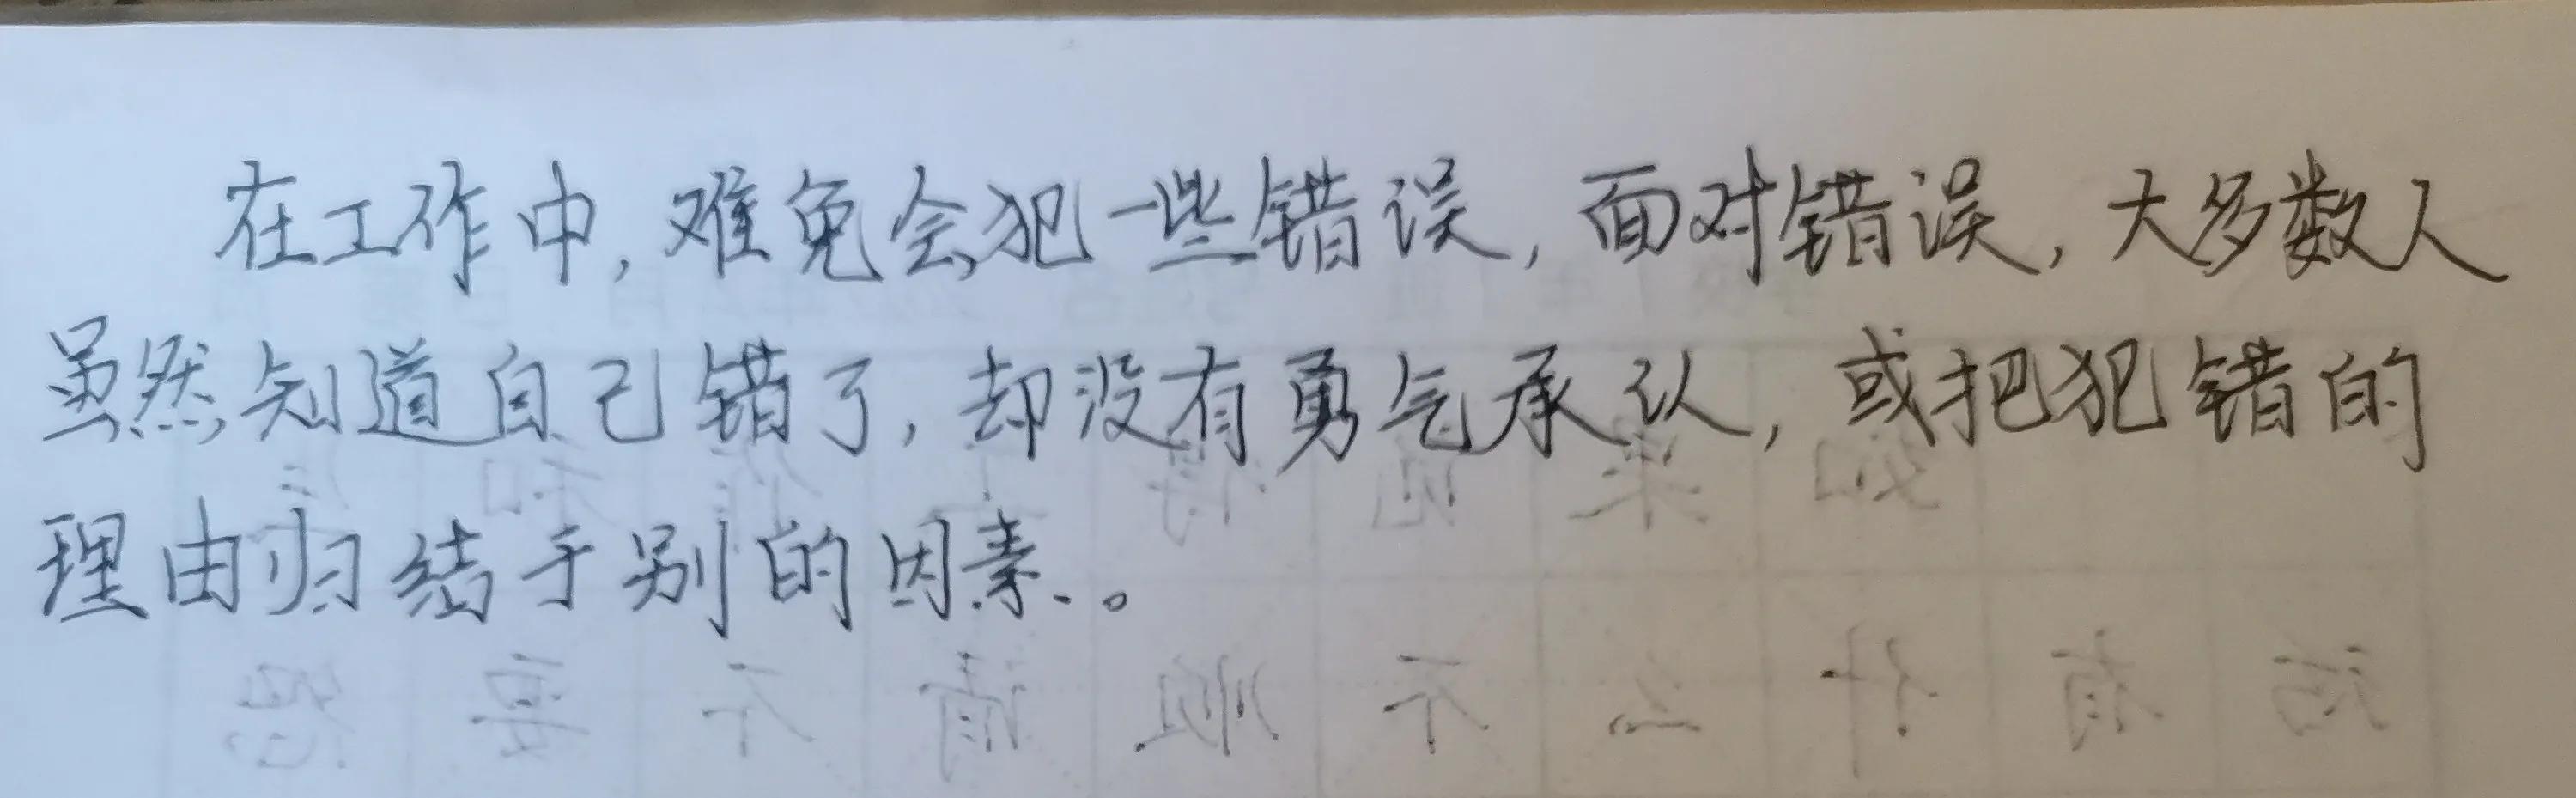 在工作中，难免会犯一些错误，面对错误，大多数人
虽然知道自己错了，却没有勇气承认，或把犯错的
理由归结于别的因素。